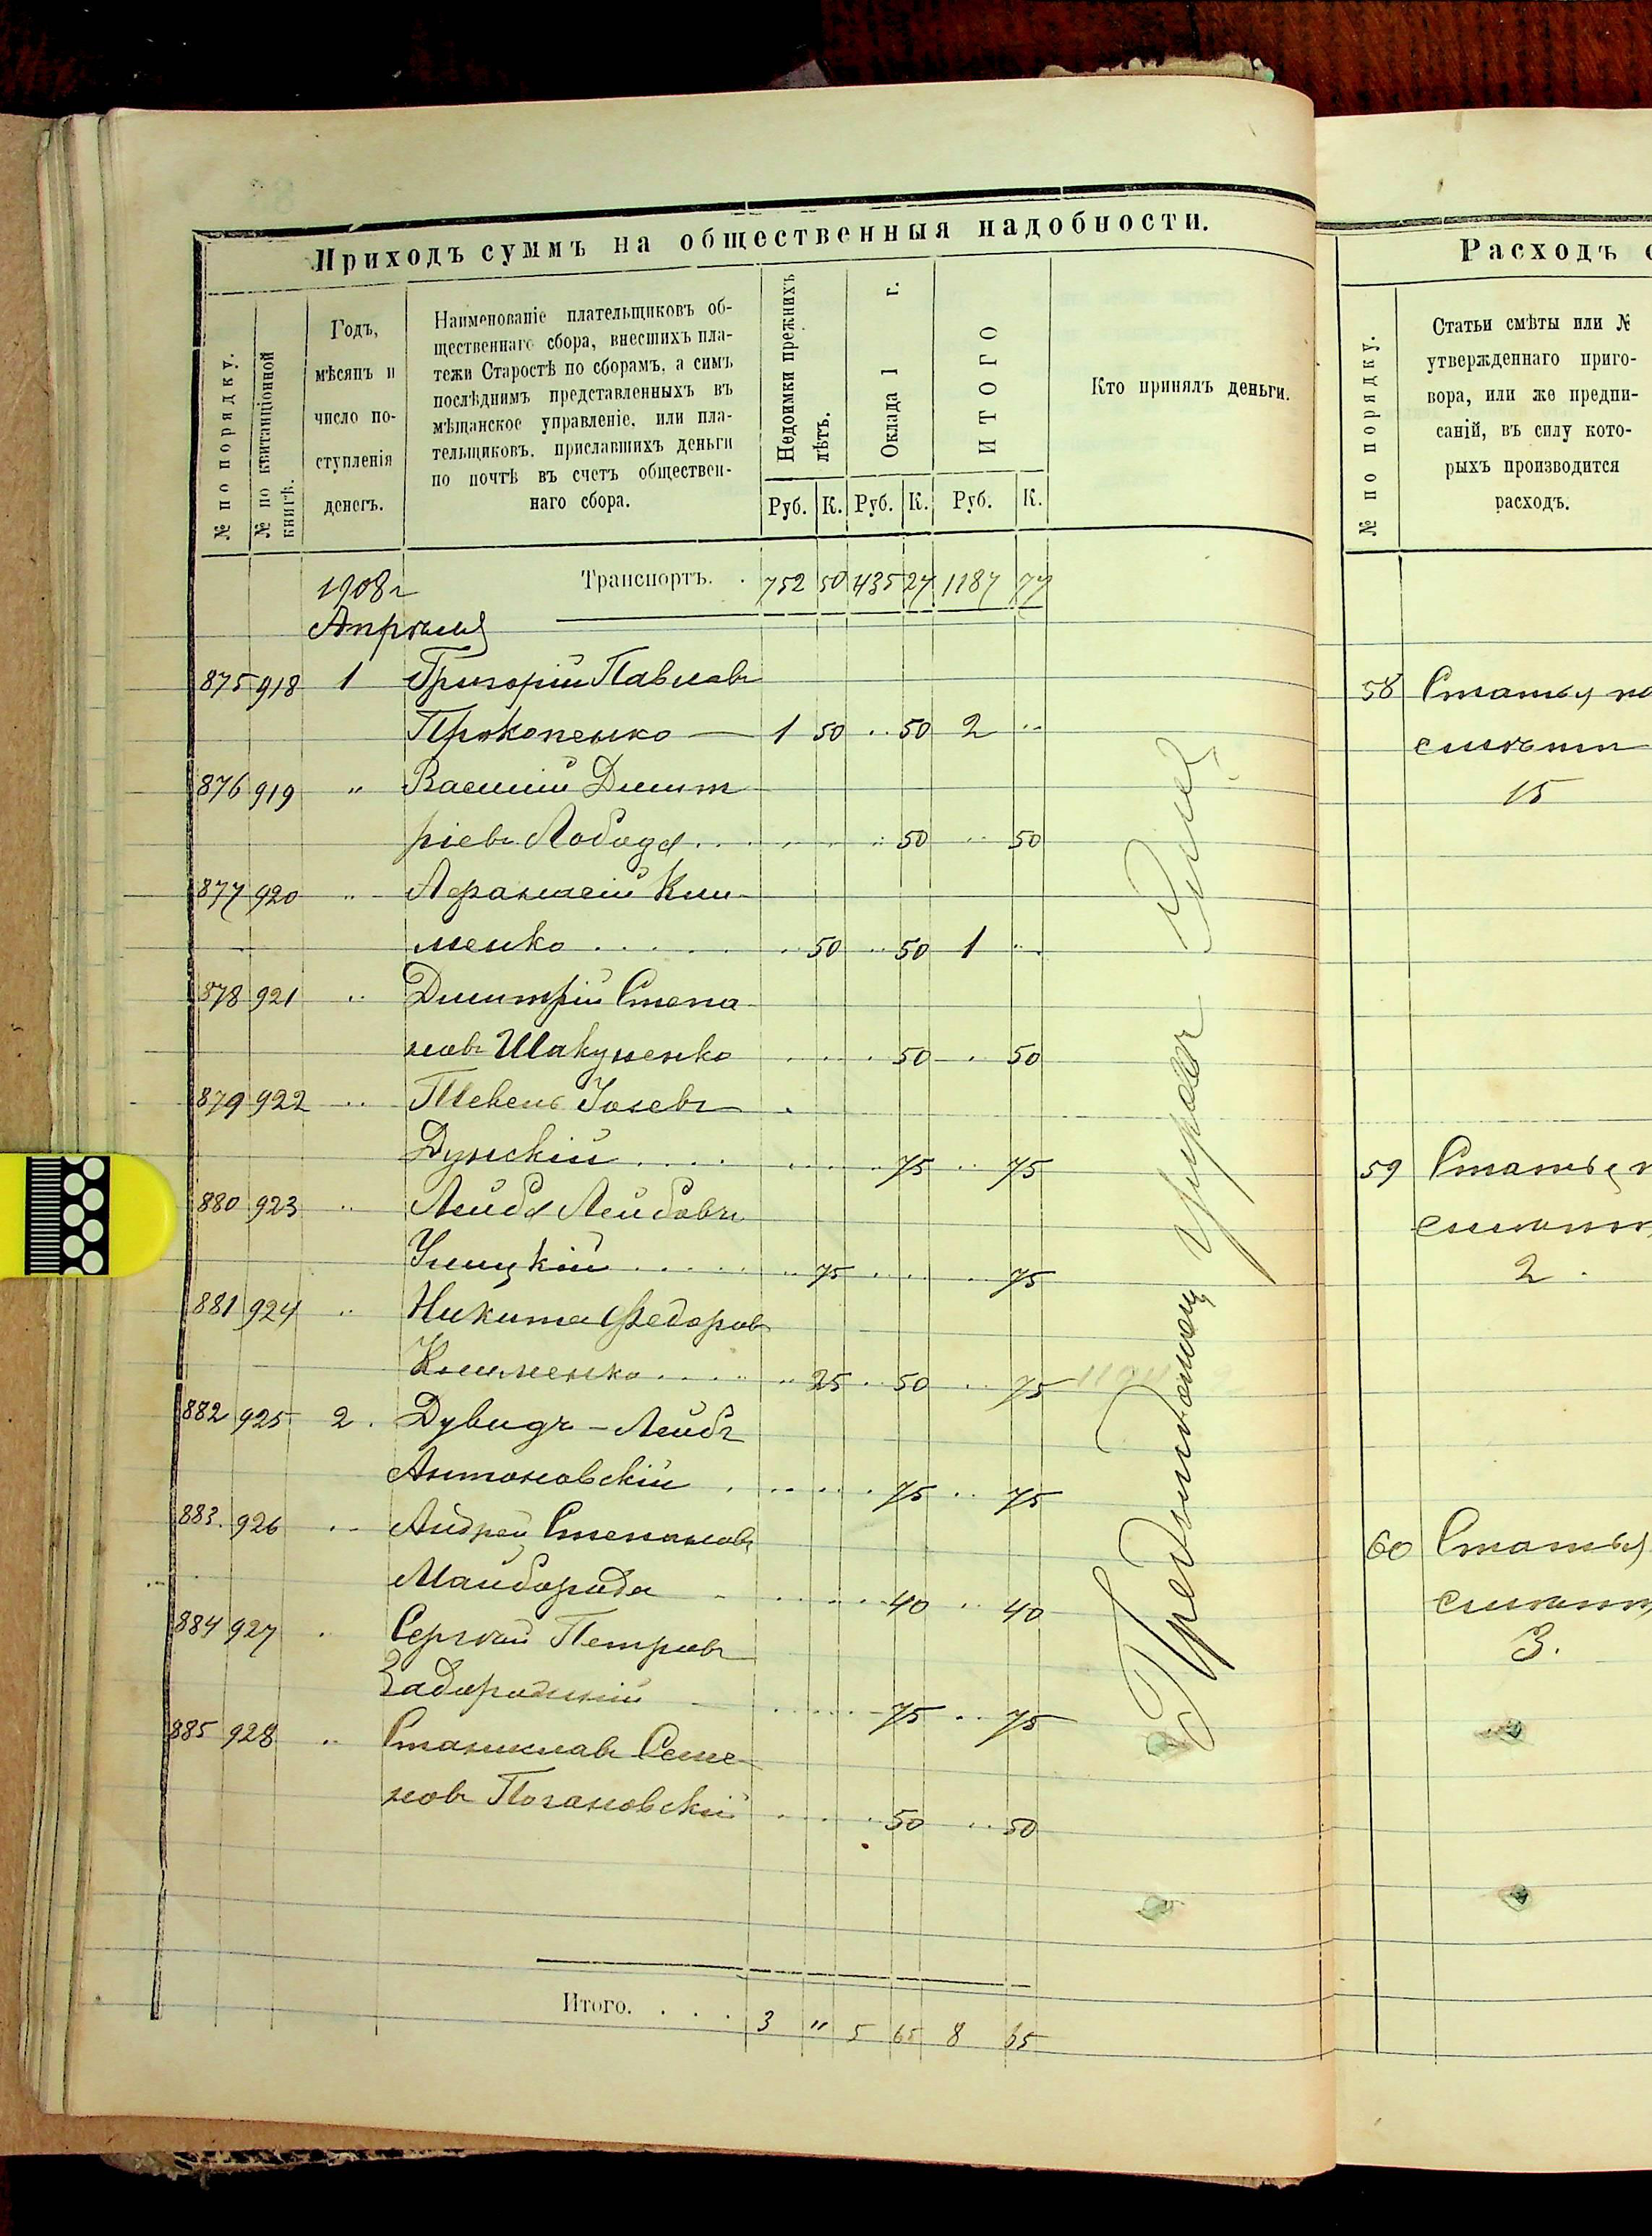 Приходъ суммъ на общественныя надобности.
№ по порядку.
№ по квитанціонной книгѣ.
Годъ,
мѣсяцъ и
число по-
ступленія
денегъ.
Наименованіе плательщиковъ об-
щественнаго сбора, внесшихъ пла-
тежи Старостѣ по сборамъ, а симъ
послѣднимъ представленныхъ въ
мѣщанское управленіе, или пла-
тельщиковъ, приславшихъ деньги
по почтѣ въ счетъ обществен-
наго сбора.
Недоимки прежнихъ лѣтъ.
Оклада 1 г.
ИТОГО
Кто принялъ деньги.
Руб. К. Руб. К. Руб. К.
1908 г Транспортъ. . 752 50 435 27 1187 77
Апрѣля
875 918 1 Григорій Павловъ
Прокопенко — 1 50 .. 50 2 ..
876 919 " Василій Димит
ріевъ Лобода . . . 50 .. 50
877 920 .. Афанасій Кли-
менко . . . . . 50 .. 50 1 ..
878 921 .. Димитрій Степа
новъ Шакуненко . . . . 50 .. 50
879 922 ..
Дунскій . . . . 75 .. 75
880 923 .. Лейба Лейбовъ
Улицкій . . . . 75 . . . 75
881 924 .. Никита Федоровъ
Клименко . . . . 25 .. 50 .. 75
882 925 2 . Дувидъ-Лейбъ
Антоновскій . . . . 75 .. 75
883 926 .. Андрей Степановъ
Майборода . . . . 40 .. 40
884 927 . Сергѣй Петровъ
Задорожній . . . . 75 .. 75
885 928 .. Станиславъ Семе-
новъ Погановскій . . . . 50 .. 50
Итого. . . . 3 " 5 65 8 65
Расходъ
№ по порядку.
Статьи смѣты или №
утвержденнаго приго-
вора, или же предпи-
саній, въ силу кото-
рыхъ производится
расходъ.
58 Статья по
смѣты
15
59 Статья
смѣты
2 .
60 Статья
смѣты
3.